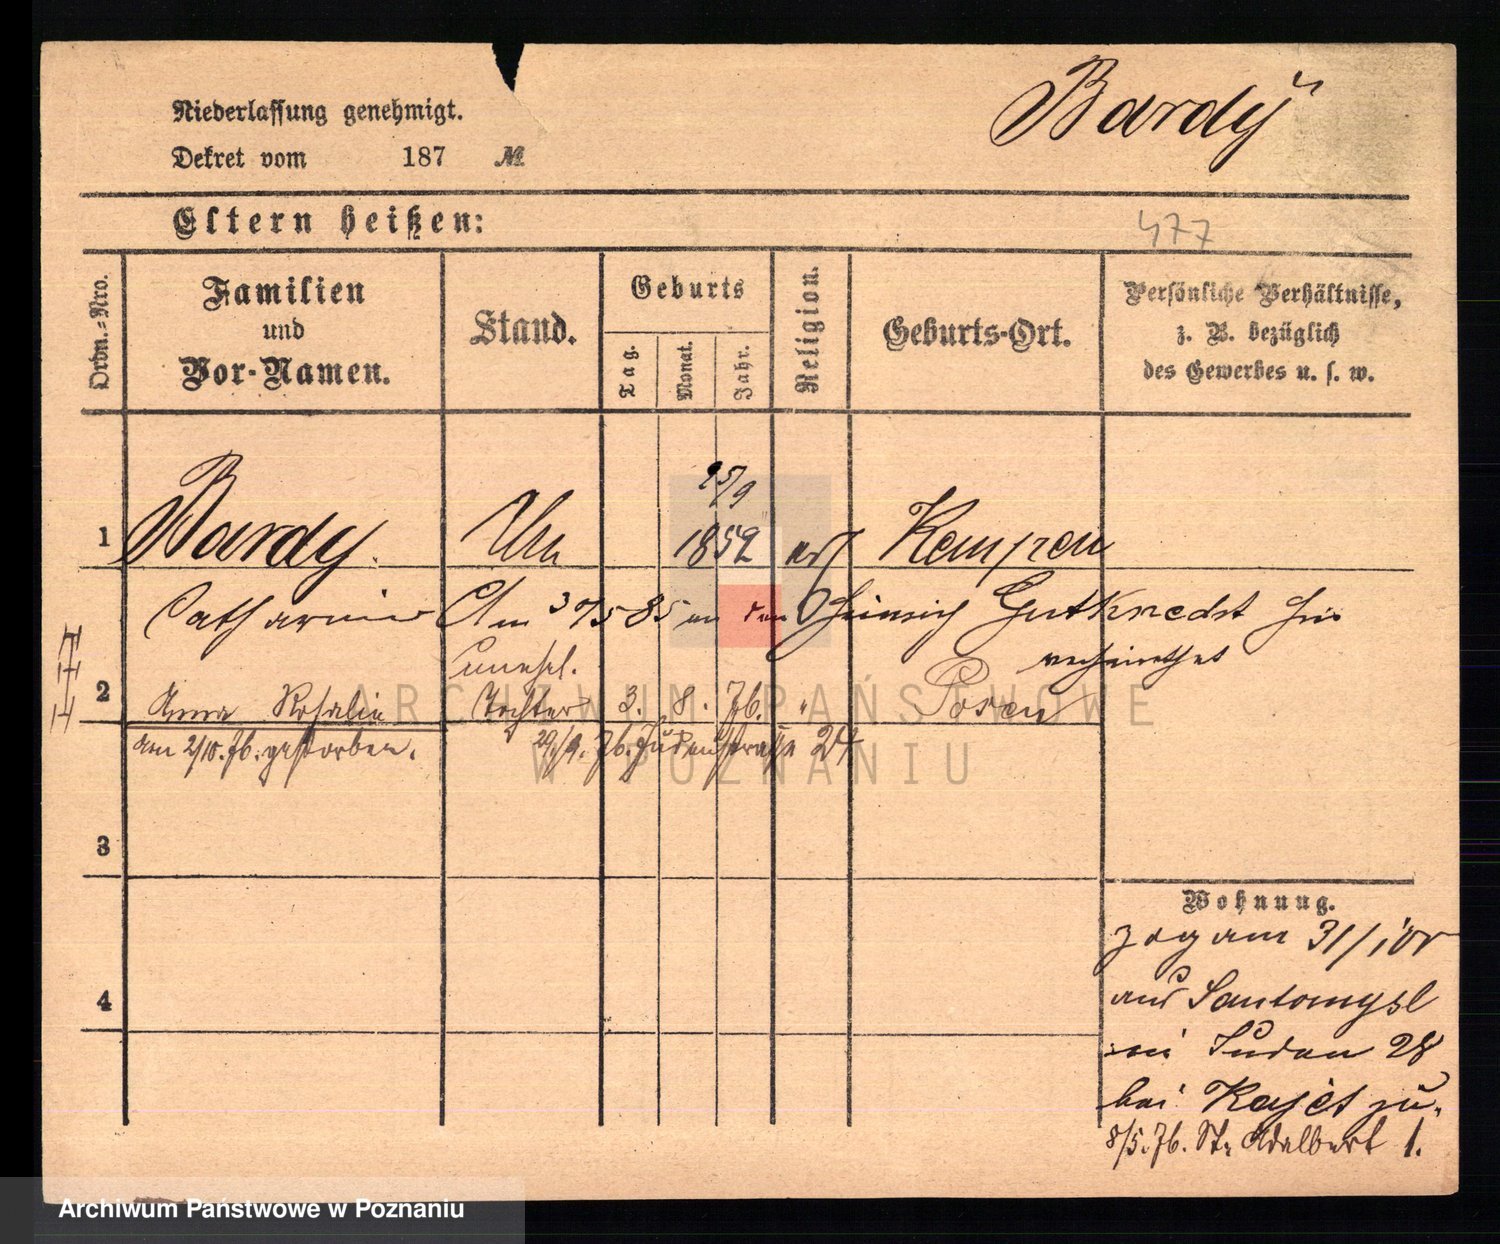 Bardy
Niederlassung genehmigt.
Dekret vom 187 №
Eltern heißen:
477
Ordn.-Nro.
Familien
und
Vor-Namen.
Stand.
Geburts
Tag.
Monat.
Jahr.
Religion.
Geburts-Ort.
Persönliche Verhältnisse,
z. B. bezüglich
des Gewerbes u. s. w.
25/9
1 Bardy. 1852 Kempen
Catharina Am 30/5 85 an den Heinrich Gutknecht hier
verheirathet
unehl.
2 Anna Rosalie Tochter 3. 8. 76. " Posen
am 2/10. 76. gestorben. 29/9. 76. Judenstraße 24
3
4
Wohnung.
zog am 31/
aus Santomysl
in Juden 28
bei Kajet zu.
8/5. 76. St. Adalbert 1.
ARCHIWUM PAŃSTWOWE
W POZNANIU
Archiwum Państwowe w Poznaniu